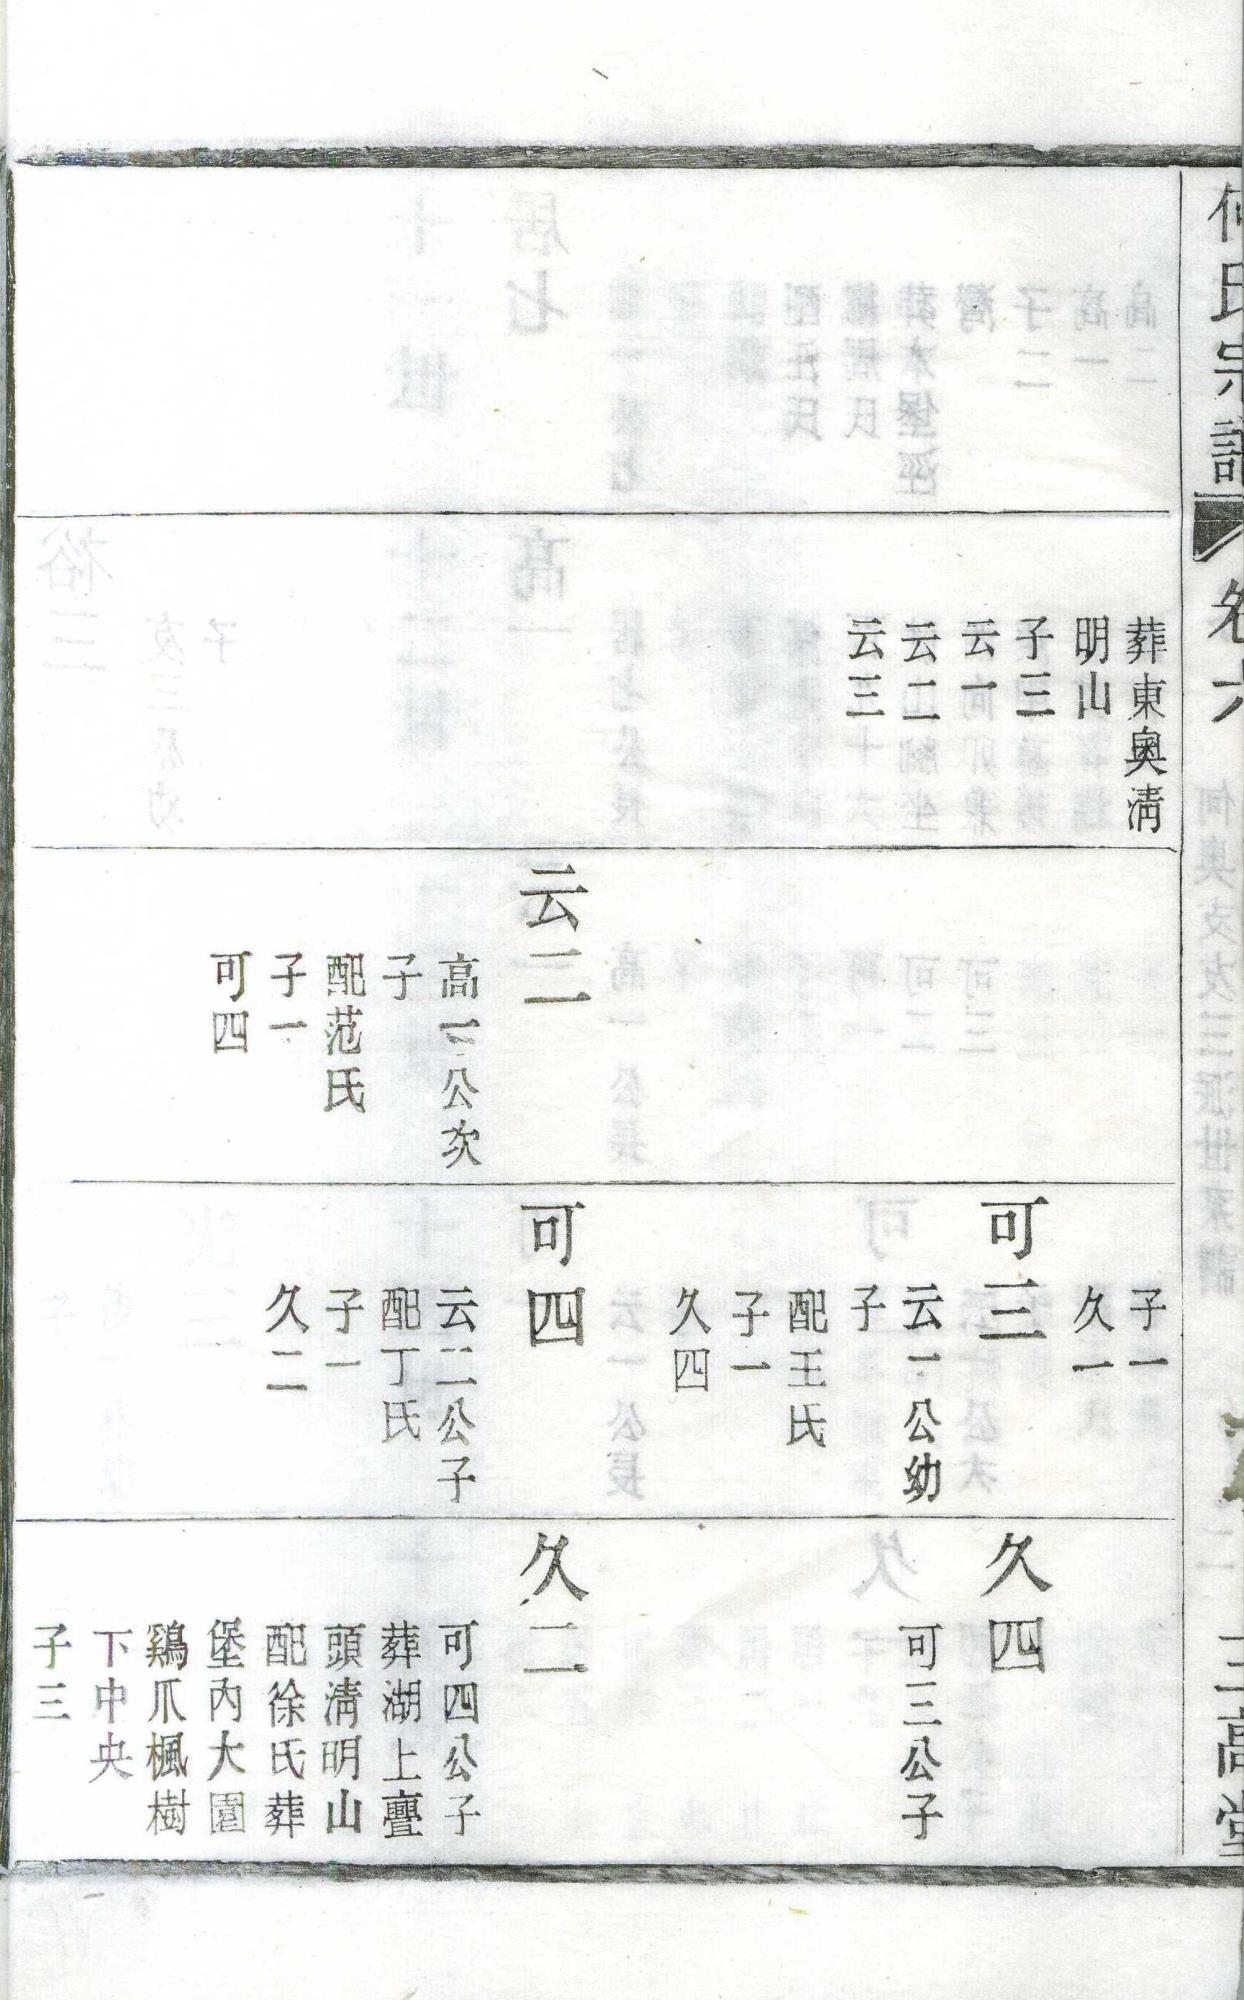 何氏宗譜
卷六
三高堂
葬東奥清
明山
子三
云一
云二
云三
云二
高一公次
子
配范氏
子一
可四
子一
久一
可三
云一公幼
子
配王氏
子一
久四
可四
云二公子
配丁氏
子一
久二
久四
可三公子
久二
可四公子
葬湖上亹
頭清明山
配徐氏葬
堡内大園
鷄爪楓樹
下中央
子三